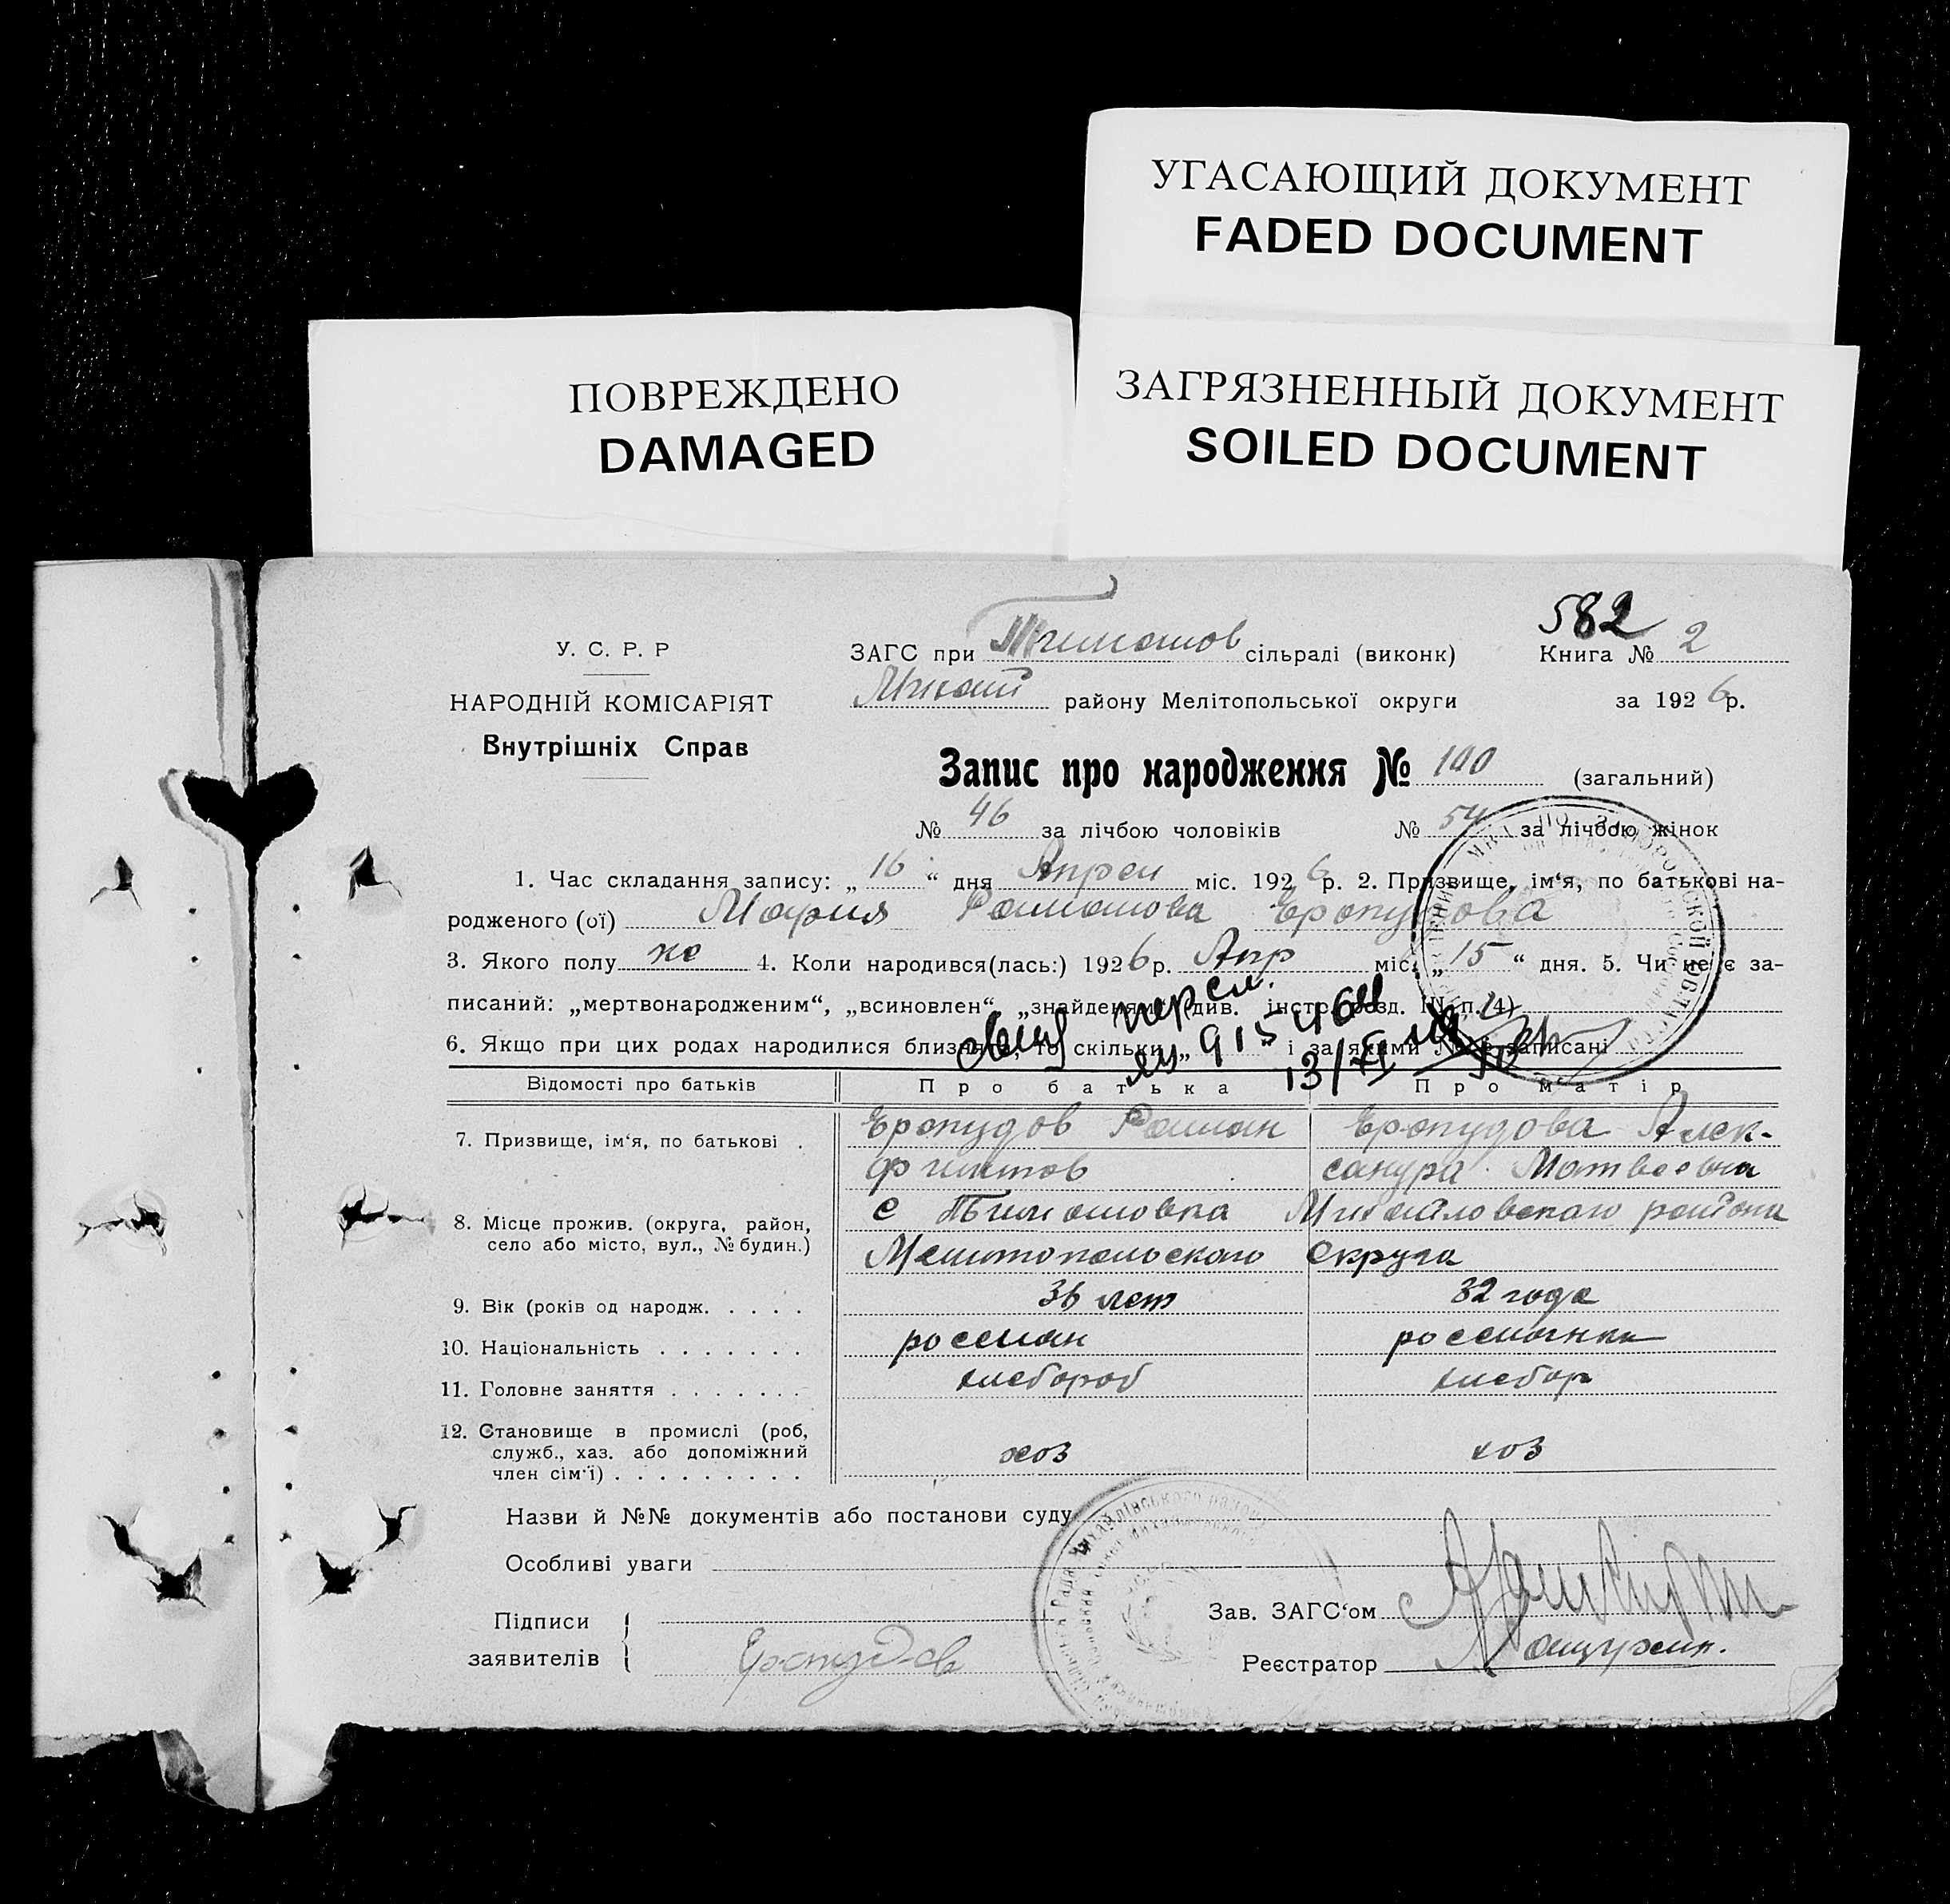 УГАСАЮЩИЙ ДОКУМЕНТ
FADED DOCUMENT
ПОВРЕЖДЕНО
DAMAGED
ЗАГРЯЗНЕННЫЙ ДОКУМЕНТ
SOILED DOCUMENT
582
У. С. Р. Р
НАРОДНІЙ КОМІСАРІЯТ
Внутрішніх Справ
ЗАГС при Тимошов сільраді (виконк)
Книга № 2
Михай району Мелітопольської округи
за 1926 р.
Запис про народження № 100 (загальний)
№ 46 за лічбою чоловіків № 54 за лічбою жінок
1. Час складання запису: „16“ дня Апрел міс. 1926 р. 2. Призвище, ім‘я, по батькові на-
родженого (ої) Мария Романова Еропудова
3. Якого полу же 4. Коли народився(лась:) 1926 р. Апр міс. „15“ дня. 5. Чи не є за-
писаний: „мертвонародженим“, „всиновлен“, „знайденям“ (див. інстр. розд. III п. 4)
6. Якщо при цих родах народилися близнята, то скільки „ “ і за якими № є записані
13/XI
Відомості про батьків Про батька Про матір
7. Призвище, ім‘я, по батькові . Еропудов Роман Еропудова Алек-
Филитов сандра Матвеевна
8. Місце прожив. (округа, район, с Тимошовка Михайловского района
село або місто, вул., № будин.) Мелитопольского Округа
9. Вік (років од народж. . . . . 36 лет 32 года
10. Національність . . . . . . . россиян россиянка
11. Головне заняття . . . . . . . хлебороб хлебор
12. Становище в промислі (роб,
служб., хаз. або допоміжний хоз хоз
член сім‘ї) . . . . . . . . .
Назви й №№ документів або постанови суду
Особливі уваги
Підписи
заявителів Еропудов
Зав. ЗАГС‘ом
Реєстратор